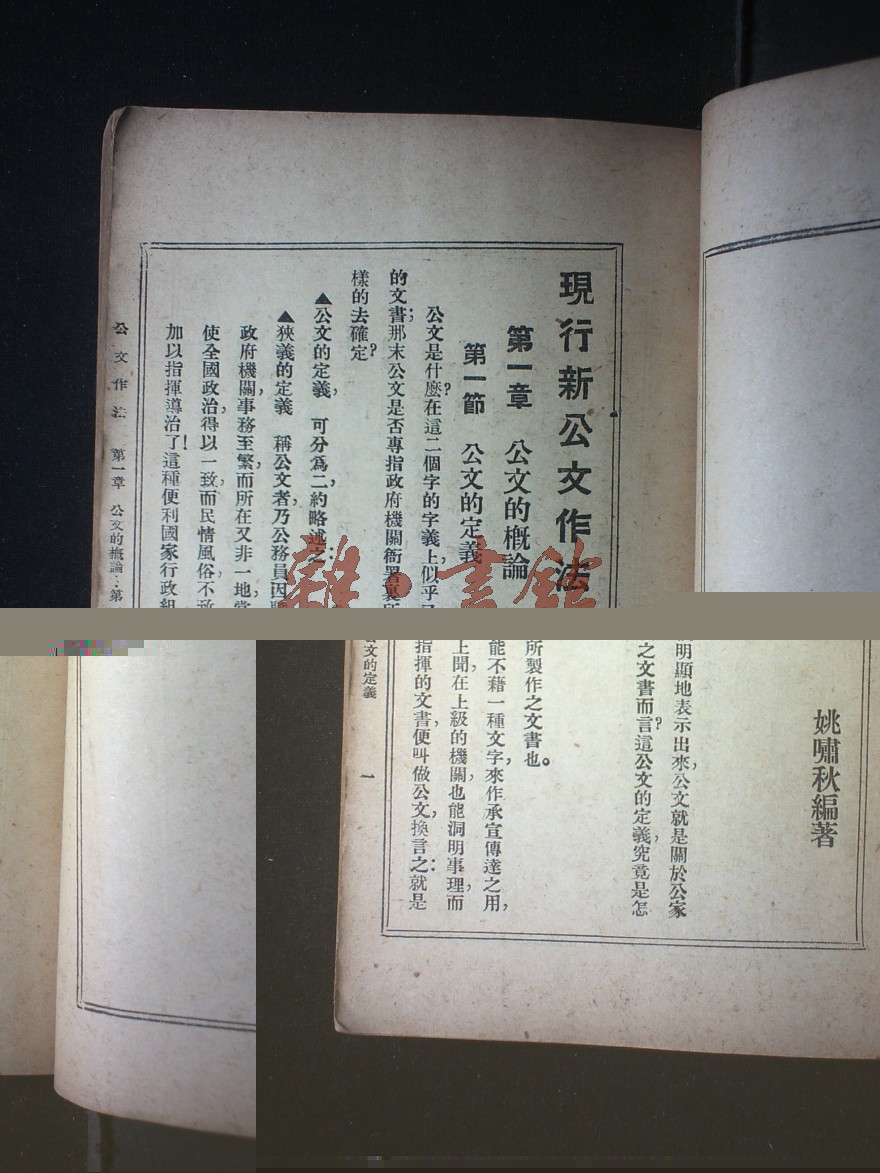 現行新公文作法
第一章　公文的概論
第一節　公文的定義
公文是什麼?在這二個字的字義上,似乎
的文書;那末公文是否專指政府機關衙署裏
樣的去確定?
▲公文的定義,　可分爲二,約略述之:
▲狹義的定義　稱公文者,乃公務員因
政府機關,事務至繁,而所在又非一地,
使全國政治得以一致,而民情風俗,不致
加以指揮導治了!這種便利國家行政組
公文作法　第一章　公文的概論:第
雜·書館
姚嘯秋編著
明顯地表示出來,公文就是關於公家
之文書而言?這公文的定義,究竟是怎
所製作之文書也。
能不藉一種文字,來作承宣傳達之用,
上聞,在上級的機關,也能洞明事理,而
指揮的文書,便叫做公文,換言之:就是
公文的定義　一